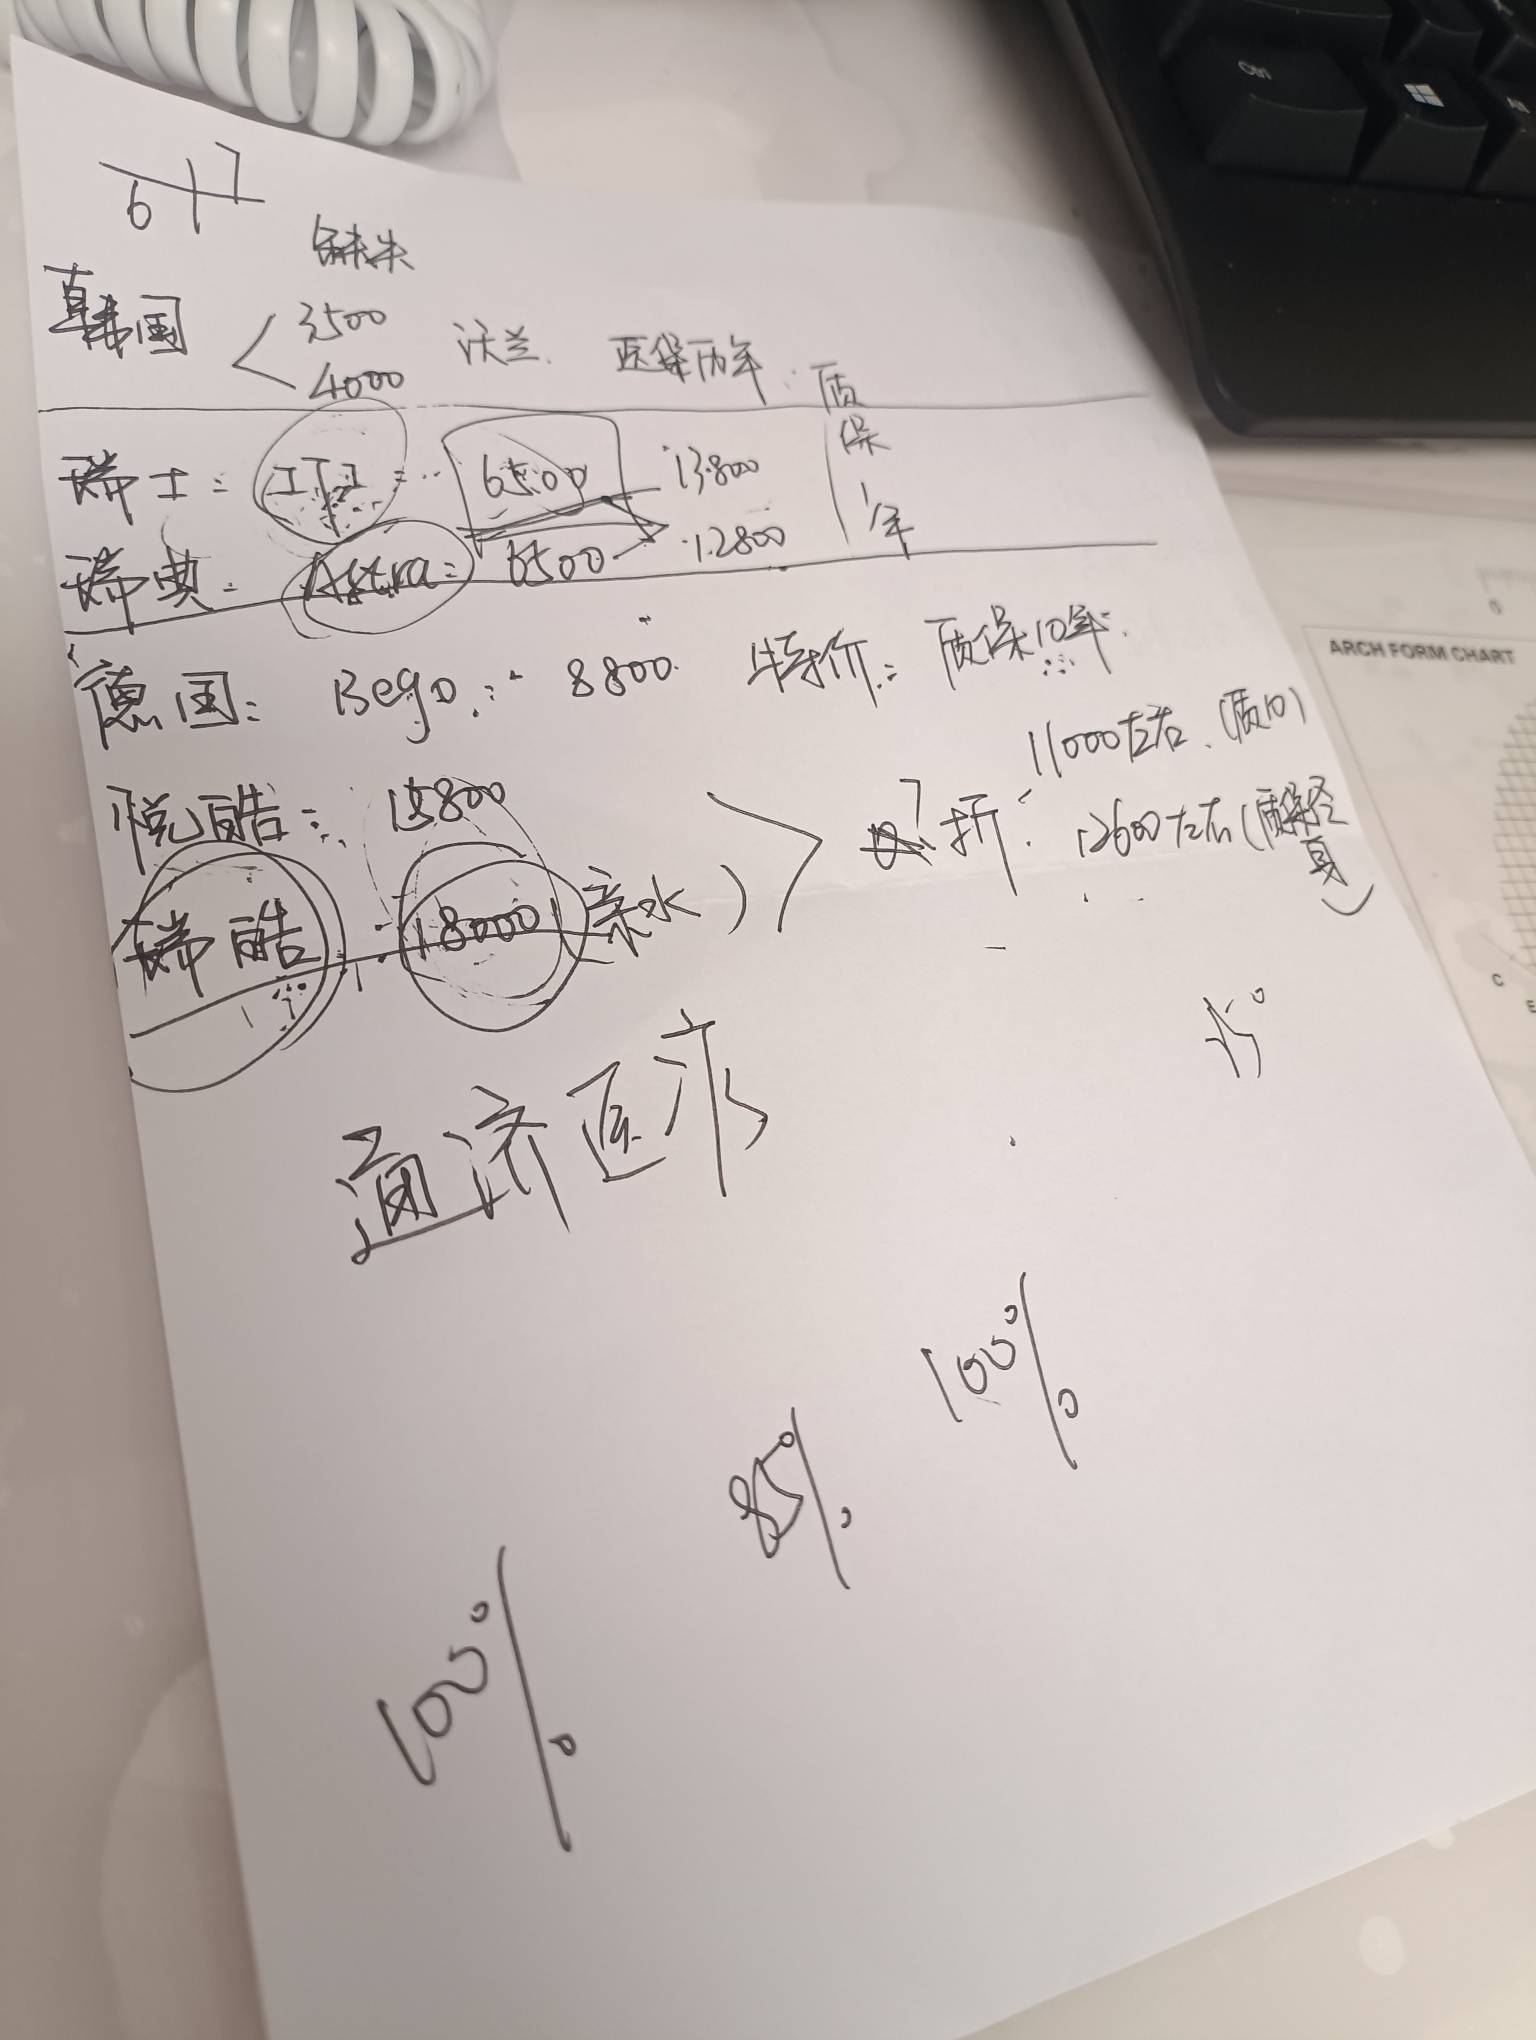 Ctrl
Alt
6 7
缺失
韩国 3500 法兰. 医保历年.
4000
瑞士: ITI = 6500 13800 质保1年
瑞典: Astra: 6500 12800
德国: Bego: 8800. 特价: 质保10年.
11000左右. (质10)
悦酷: 15800 7折: 12600左右(质保终身)
瑞酷 18000 亲水)
通济医疗
100%
85%
100%
ARCH FORM CHART
0
C
E